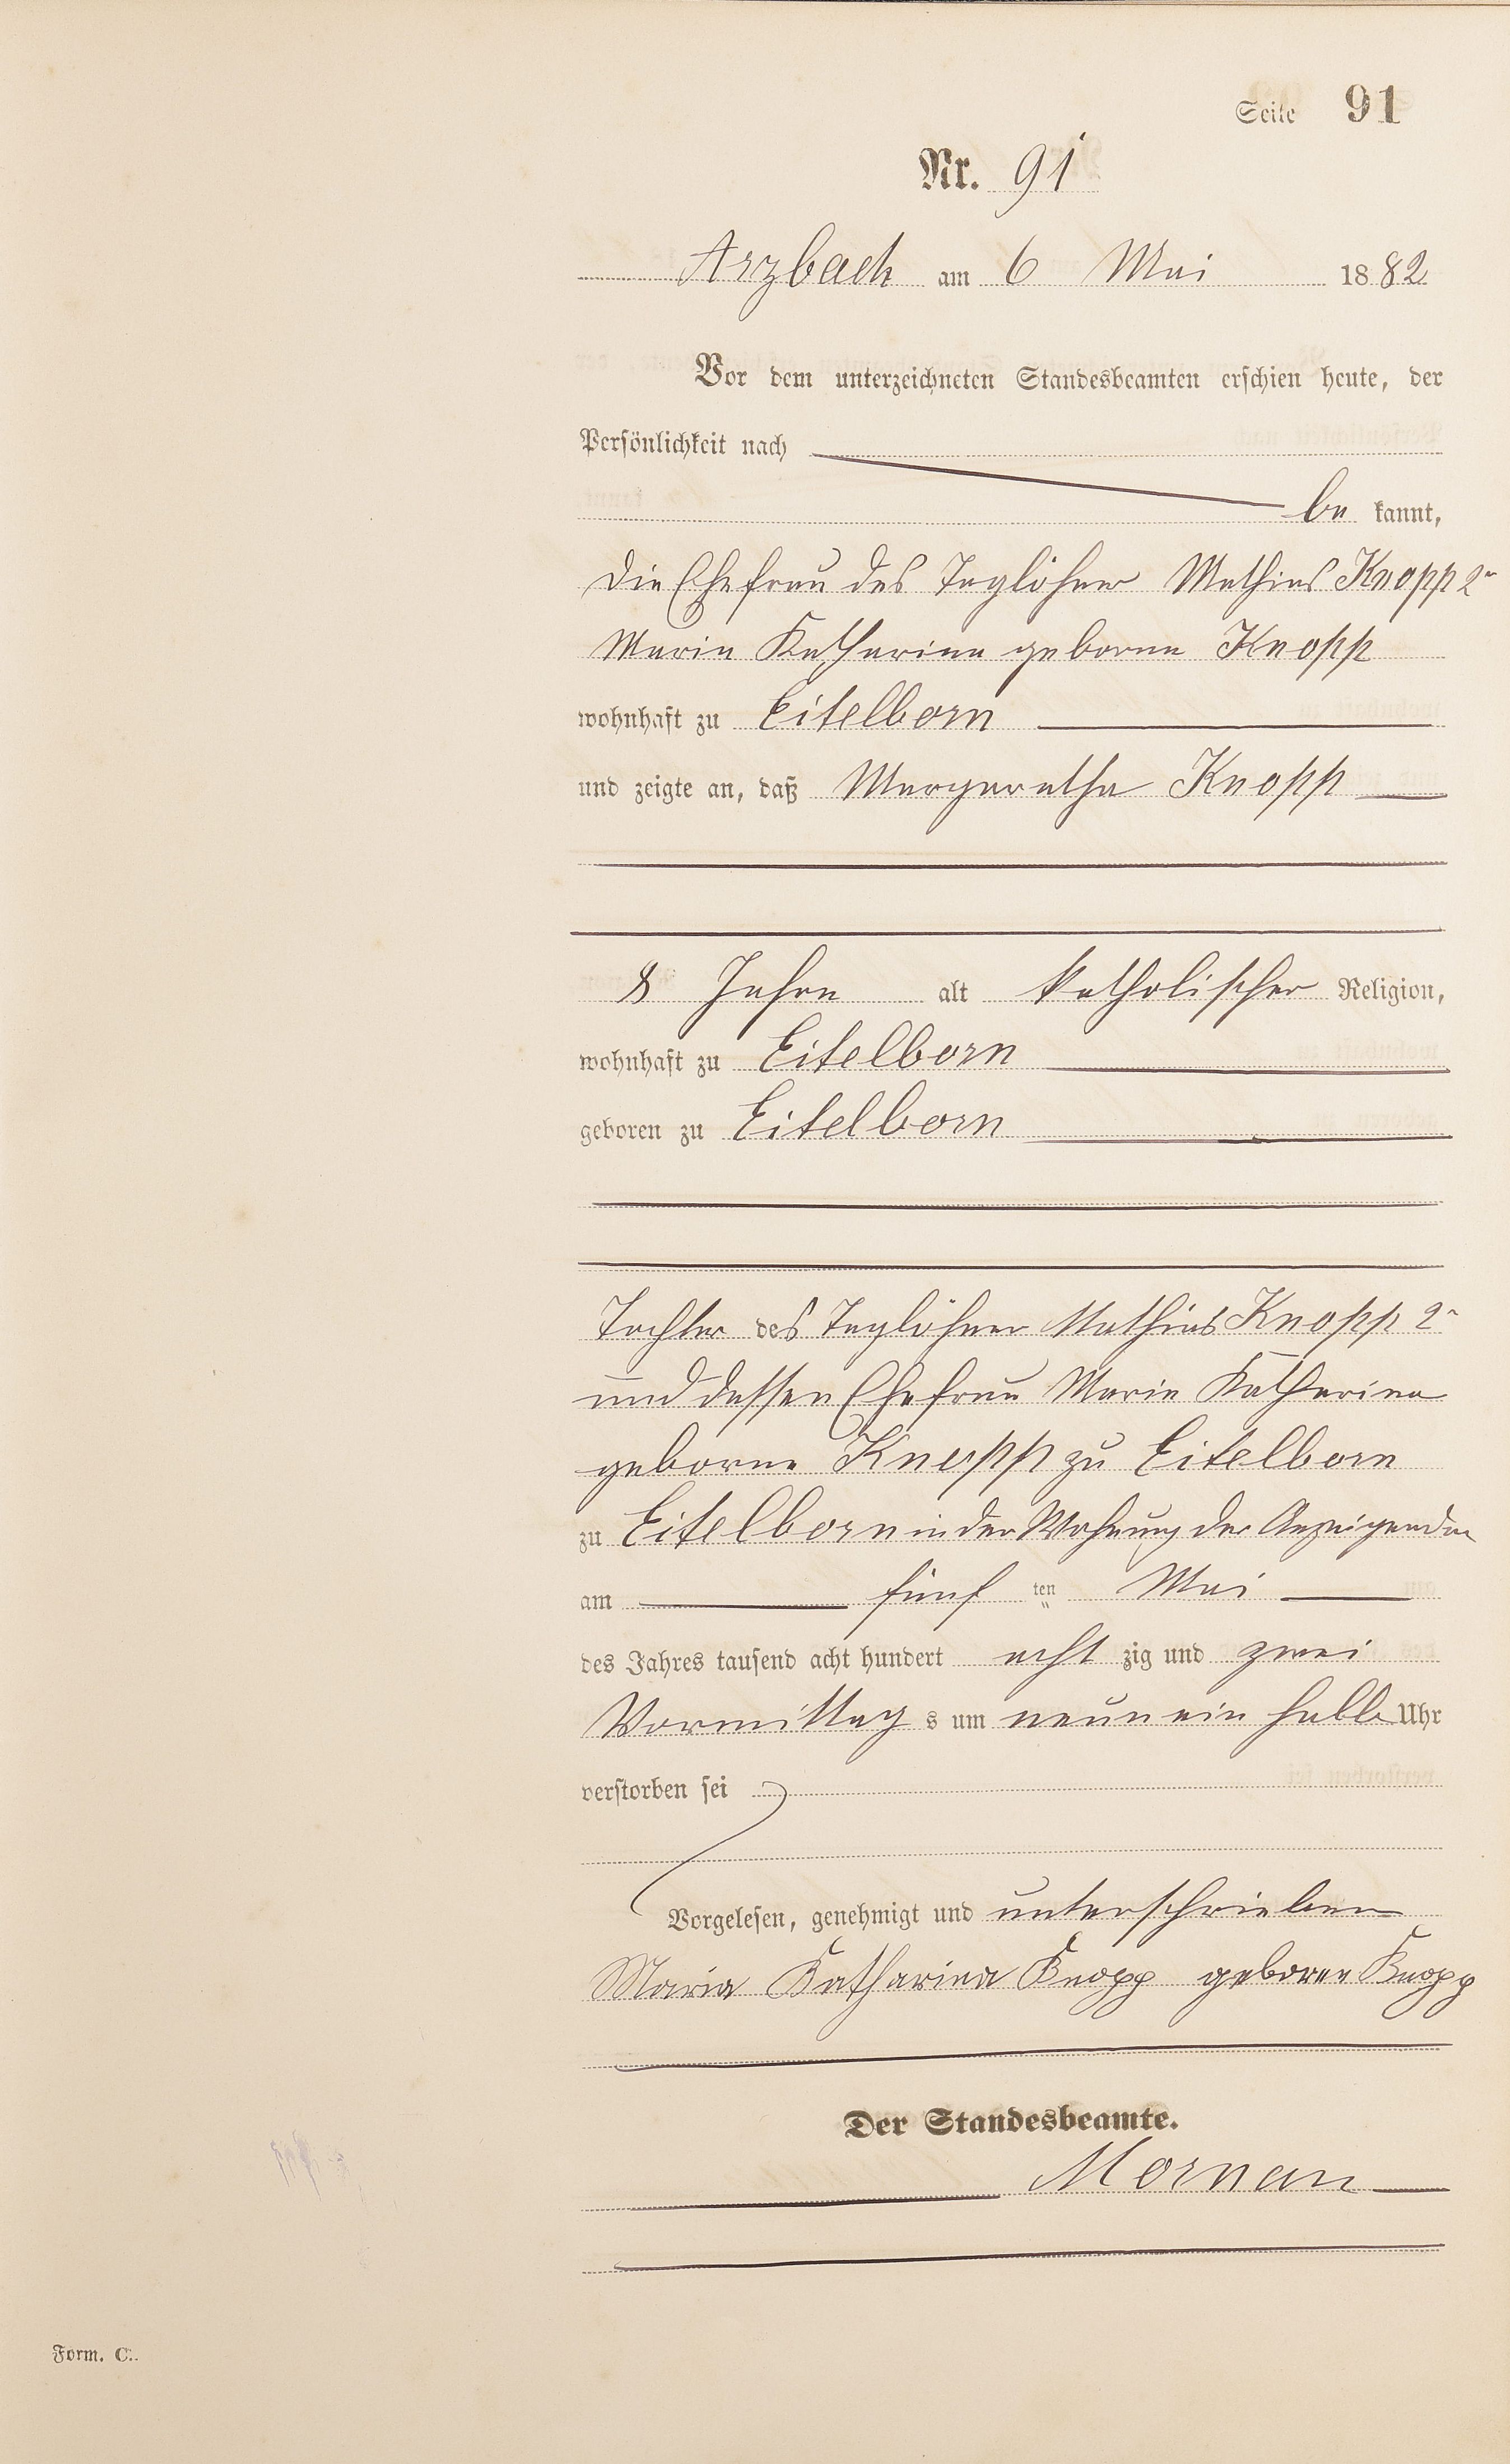 Seite 91
Nr. 91
Arzbach am 6 Mai 1882
Vor dem unterzeichneten Standesbeamten erschien heute, der
Persönlichkeit nach
be kannt,
die Ehefrau des Taglöhner Mathias Knopp 2r
Maria Katharina geborne Knopp
wohnhaft zu Eitelborn
und zeigte an, daß Margaretha Knopp
8 Jahre alt katholischer Religion,
wohnhaft zu Eitelborn
geboren zu Eitelborn
Tochter des Taglöhner Mathias Knopp 2r
und dessen Ehefrau Maria Katharina
geborne Knopp zu Eitelborn
zu Eitelborn in der Wohnung der Anzeigenden
am fünf ten Mai
des Jahres tausend acht hundert acht zig und zwei
Vormittag s um neun ein halb Uhr
verstorben sei
Vorgelesen, genehmigt und unterschrieben
Maria Katharina Knopp geborne Knopp
Der Standesbeamte.
Form. C.